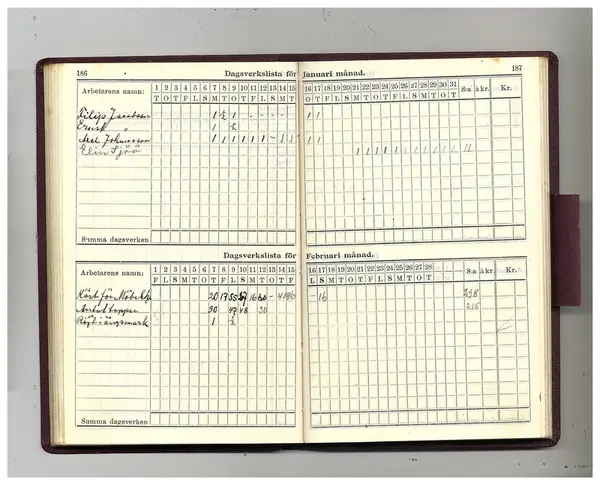 186
Dagsverkslista för januari månad.
187
Arbetarens namn: 1 2 3 4 5 6 7 8 9 10 11 12 13 14 15 16 17 18 19 20 21 22 23 24 25 26 27 28 29 30 31 S:a à kr. Kr.
T O T F L S M T O T F L S M T O T F L S M T O T F L S M T O T
Filip 1 ½ 1 - - - - 1 1
Ernst 1 ½
Axel Johansson 1 1 1 1 1 1 - 1 1 1 1
Elin Sjöö 1 1 1 1 1 1 1 1 1 1 1 11
Summa dagsverken
Dagsverkslista för Februari månad.
Arbetarens namn: 1 2 3 4 5 6 7 8 9 10 11 12 13 14 15 16 17 18 19 20 21 22 23 24 25 26 27 28 S:a à kr. Kr.
F L S M T O T F L S M T O T F L S M T O T F L S M T O T
Kört för 20 17 - 16
Antal 90 47 48
Röjt i ängsmark 1 ½
Summa dagsverken